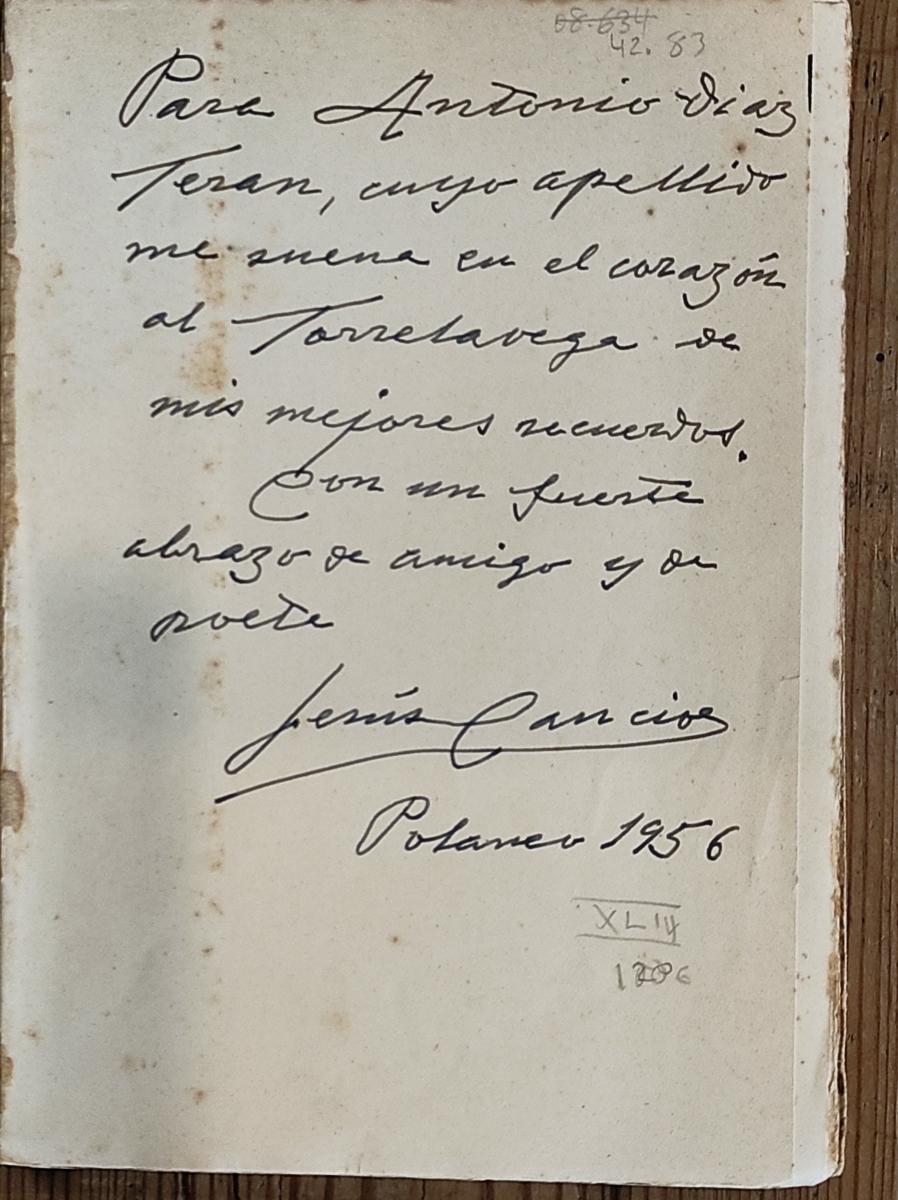 08.634
42.83
Para Antonio Diaz
Teran, cuyo apellido
me suena en el corazón
al Torrelavega de
mis mejores recuerdos.
Con un fuerte
abrazo de amigo y de
poeta
Jesús Cancio
Polanco 1956